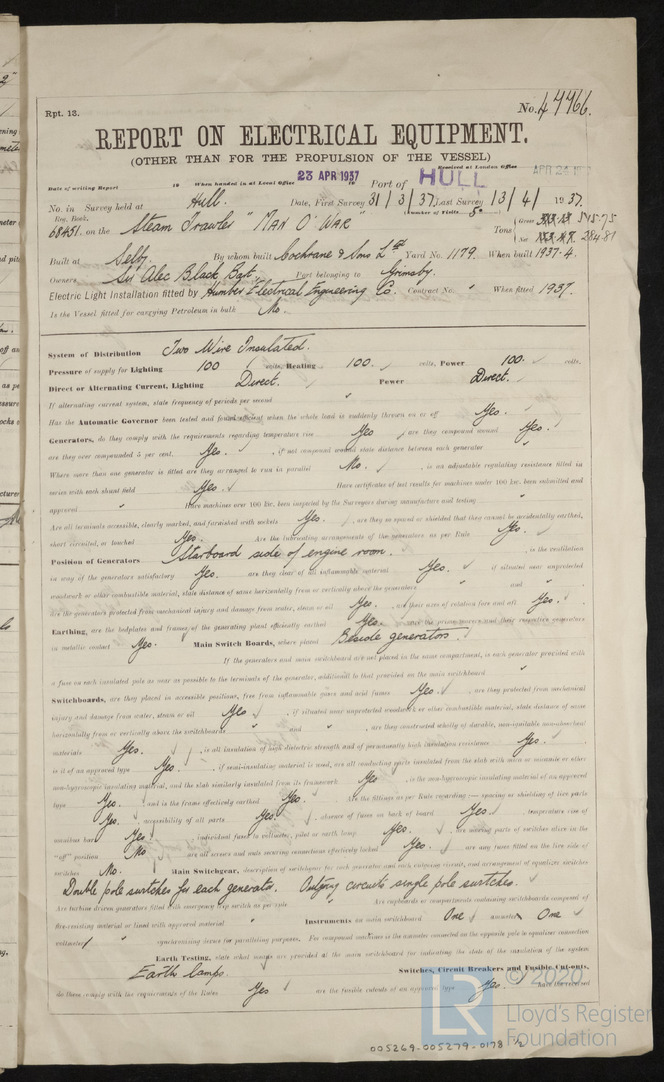 Rpt. 13.
No. 44466.
REPORT ON ELECTRICAL EQUIPMENT.
(OTHER THAN FOR THE PROPULSION OF THE VESSEL)
Received at London Office APR 24 1937
Date of writing Report 19 When handed in at Local Office 23 APR 1937 Port of HULL
No. in Survey held at Hull. Date, First Survey 31/3/37 Last Survey 13/4/1937.
Reg. Book. (Number of Visits 5)
68451. on the Steam Trawler "Man O' War" Tons Gross 545.75
Net 284.81
Built at Selby. By whom built Cochrane & Sons Ltd Yard No. 1179. When built 1937-4.
Owners Sir Alec Black Bart. Port belonging to Grimsby.
Electric Light Installation fitted by Humber Electrical Engineering Co. Contract No. " When fitted 1937.
Is the Vessel fitted for carrying Petroleum in bulk No.
System of Distribution Two Wire Insulated.
Pressure of supply for Lighting 100 volts, Heating 100. volts, Power 100. volts.
Direct or Alternating Current, Lighting Direct. Power Direct.
If alternating current, state frequency of periods per second "
Has the Automatic Governor been tested and found efficient when the whole load is suddenly thrown on or off Yes.
Generators, do they comply with the requirements regarding temperature rise Yes, are they compound wound Yes.
are they over compounded 5 per cent. Yes., if not compound wound state distance between each generator "
Where more than one generator is fitted are they arranged to run in parallel No., is an adjustable regulating resistance fitted in
series with each shunt field Yes. Have certificates of test results for machines under 100 kw. been submitted and
approved " Have machines over 100 kw. been inspected by the Surveyors during manufacture and testing "
Are all terminals accessible, clearly marked, and furnished with sockets Yes., are they so spaced or shielded that they cannot be accidentally earthed,
short circuited, or touched Yes. Are the lubricating arrangements of the generators as per Rule Yes.
Position of Generators Starboard side of engine room., is the ventilation
in way of the generators satisfactory Yes. are they clear of all inflammable material Yes., if situated near unprotected
woodwork or other combustible material, state distance of same horizontally from or vertically above the generators " and "
are the generators protected from mechanical injury and damage from water, steam or oil Yes., are their axes of rotation fore and aft Yes.
Earthing, are the bedplates and frames of the generating plant efficiently earthed Yes. are the prime movers and their respective generators
in metallic contact Yes. Main Switch Boards, where placed Beside generators.
If the generators and main switchboard are not placed in the same compartment, is each generator provided with
a fuse on each insulated pole as near as possible to the terminals of the generator, additional to that provided on the main switchboard "
Switchboards, are they placed in accessible positions, free from inflammable gases and acid fumes Yes., are they protected from mechanical
injury and damage from water, steam or oil Yes, if situated near unprotected woodwork or other combustible material, state distance of same
horizontally from or vertically above the switchboards " and ", are they constructed wholly of durable, non-ignitable non-absorbent
materials Yes., is all insulation of high dielectric strength and of permanently high insulation resistance Yes.
is it of an approved type Yes., if semi-insulating material is used, are all conducting parts insulated from the slab with mica or micanite or other
non-hygroscopic insulating material, and the slab similarly insulated from its framework Yes, is the non-hygroscopic insulating material of an approved
type Yes. and is the frame effectively earthed Yes. Are the fittings as per Rule regarding:— spacing or shielding of live parts
Yes., accessibility of all parts Yes., absence of fuses on back of board Yes., temperature rise of
omnibus bars Yes., individual fuses to voltmeter, pilot or earth lamp Yes., are moving parts of switches alive in the
"off" position No are all screws and nuts securing connections effectively locked Yes. are any fuses fitted on the live side of
switches No. Main Switchgear, description of switchgear for each generator and each outgoing circuit, and arrangement of equalizer switches
Double pole switches for each generator. Outgoing circuits single pole switches.
Are turbine driven generators fitted with emergency trip switch as per rule Are cupboards or compartments containing switchboards composed of
fire-resisting material or lined with approved material " Instruments on main switchboard One ammeter One
voltmeter " synchronising device for paralleling purposes. For compound machines is the ammeter connected on the opposite pole to equaliser connection
Earth Testing, state what means are provided at the main switchboard for indicating the state of the insulation of the system
Earth lamps. Switches, Circuit Breakers and Fusible Cut-outs,
do these comply with the requirements of the Rules Yes are the fusible cutouts of an approved type Yes. have the reversed
© 2020
LR
Lloyd's Register
Foundation
005269-005279-0178 1/2